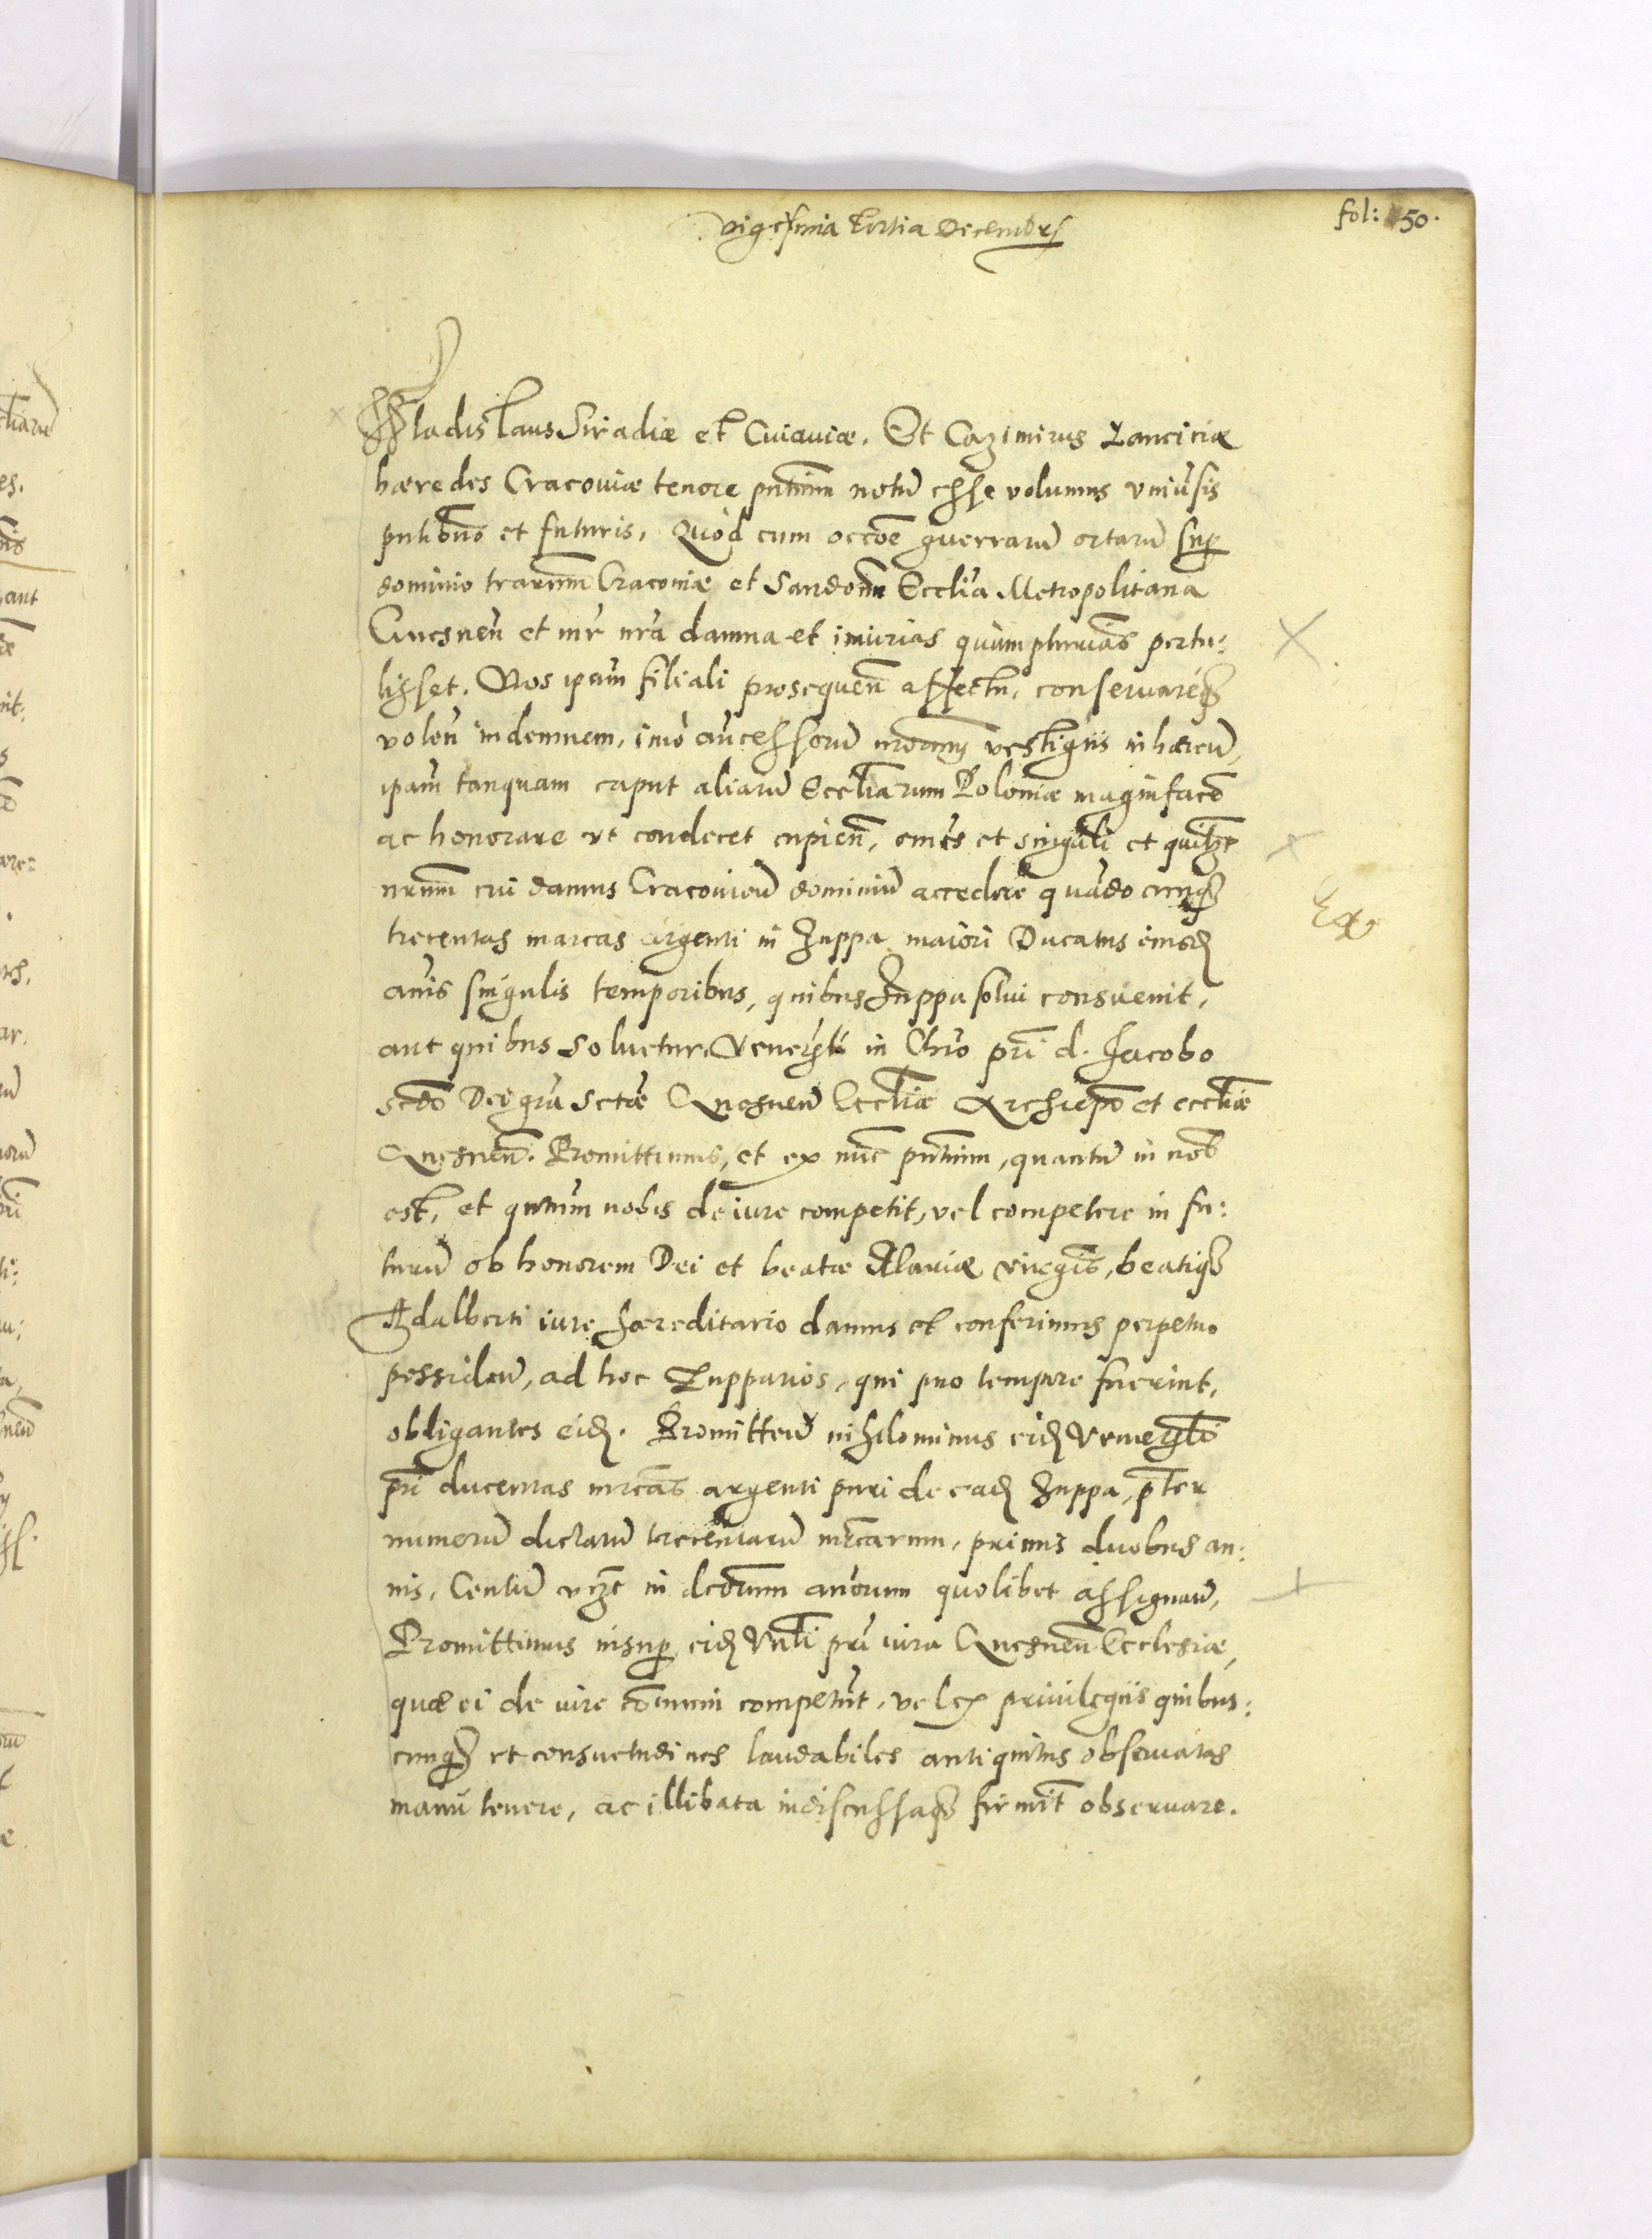 Vigesima tertia Decembris
fol: 50.
Wladislaus Siradiæ et Cuiauiæ. Et Cazimirus Lanciciæ
hæredes Cracouiæ tenore pñtium notũ esse volumus vniũsis
pñtibus et futuris, Quòd cum occõe guerrarũ ortarũ sup
dominio trarum Cracouiæ et Sandom̃ Ecclia Metropolitana
Gnesneñ et mr̃ nrã damna et iniurias quàmplurimas pertu:
lisset. Nos ipam̃ filiali prosequeñ affectu, conseruareq3
voleñ indemnem, imò añcessorũ nrõrum vestigiis inhæreñ,
ipam̃ tanquam caput aliarũ Eccliarum Poloniæ magnificare
ac honorare vt condecet cupieñ, om̃es et singuli et quilibet
nrum cui damus Cracouieñ dominiũ accedere quãdocunq3
trecentas marcas argenti in Zuppa maiori Ducatus eiusd
añis singulis temporibus, quibus Zuppa solui consueuit,
aut quibus soluetur. Venerabili in Chro pri d. Jacobo
scdo Dei gra Sctæ Gnesneñ Eccliæ Archiepo et eccliæ
Gnesneñ. Promittimus, et ex nũc pñtium, quantũ in nob
est, et qntum nobis de iure competit, vel competere in fu:
turũ ob honorem Dei et beatæ Mariæ virginis, beatiq3
Adalberti iure hæreditario damus et conferimus perpetuo
possideñ, ad hoc Zupparios, qui pro tempore fuerint,
obligantes eid. Promitteñ nihilominus eid Venerabili
pri ducentas mrcas argenti puri de ead Zuppa, pter
numerũ dictarũ trecentarũ mrcarum, primis duobus an:
nis, Centũ vzt in dctorum añorum quolibet assignañ,
Promittimus insup eid Vnli pri iura Gnesneñ Ecclesiæ,
quæ ei de iure cõmuni competũt, vel ex priuilegiis quibus:
cunq3 et consuetudines laudabiles antiquitus obseruatas
manũ tenere, ac illibata indiscussaq3 firmit obseruare.